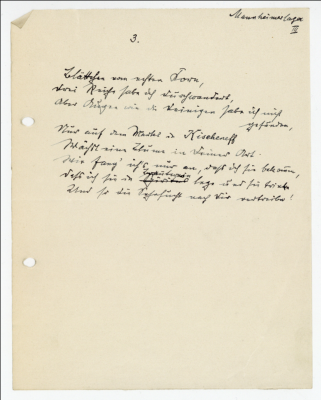 Mannheimer Lager
II
3.
Blättchen vom roten Dorn,
drei Reiche habe ich durchwandert,
Aber Augen wie die Deinigen habe ich nicht
gefunden,
Nur auf dem Markt in Kischeneff
Wächst eine Blume in Deiner Art.
Wie fang' ich's nur an, daß ich sie bekomme,
Daß ich sie in lege und sie trinke
Und so die Sehnsucht nach Dir vertreibe!